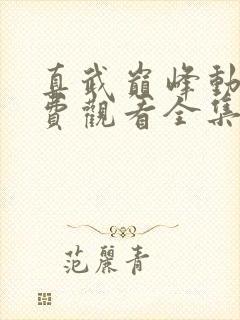 真武巔峰動
費觀看全集
范麗青